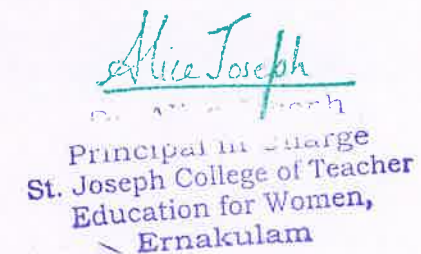 Alice Joseph
Principal in Charge
St. Joseph College of Teacher
Education for Women,
Ernakulam